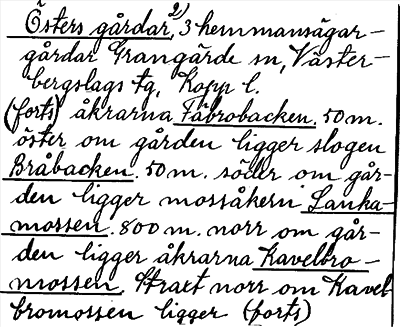 Östers gårdar, 2) 3 hemmansägar-
gårdar Grangärde sn, Väster-
bergslags tg, Kopp l.
(forts) åkrarna Fäbrobacken. 50 m.
öster om gården ligger slogen
Bråbacken. 50 m. söder om går-
den ligger mossåkern Lanka-
mossen. 800 m. norr om går-
den ligger åkrarna Kavelbro-
mossen. Straxt norr om Kavel
bromossen ligger (forts)